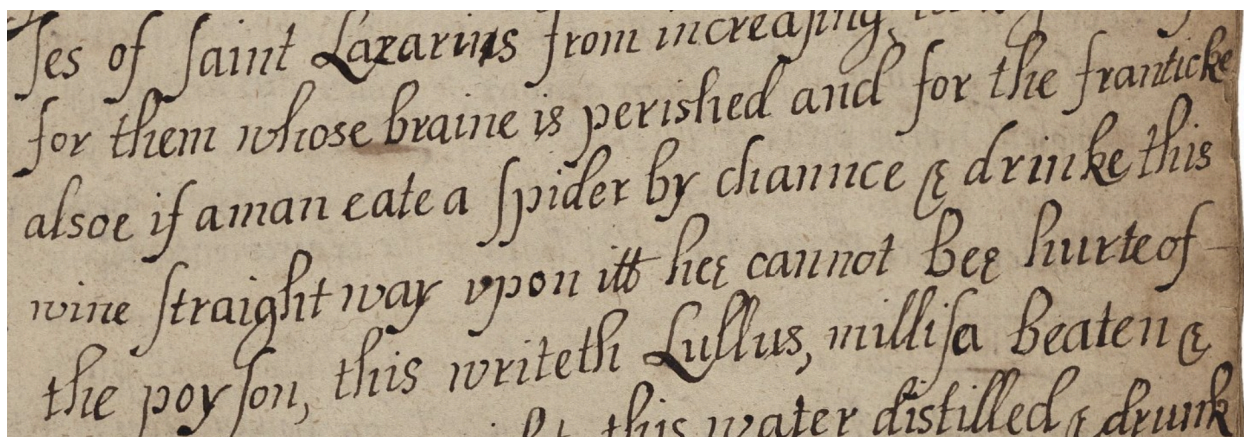 ses of saint Lazarius from increasing
for them whose braine is perished and for the franticke
alsoe if a man eate a spider by channce & drinke this
wine straight way vpon itt hee cannot bee hurte of
the poyson, this writeth Lullus, millisa beaten &
this water distilled & drunk